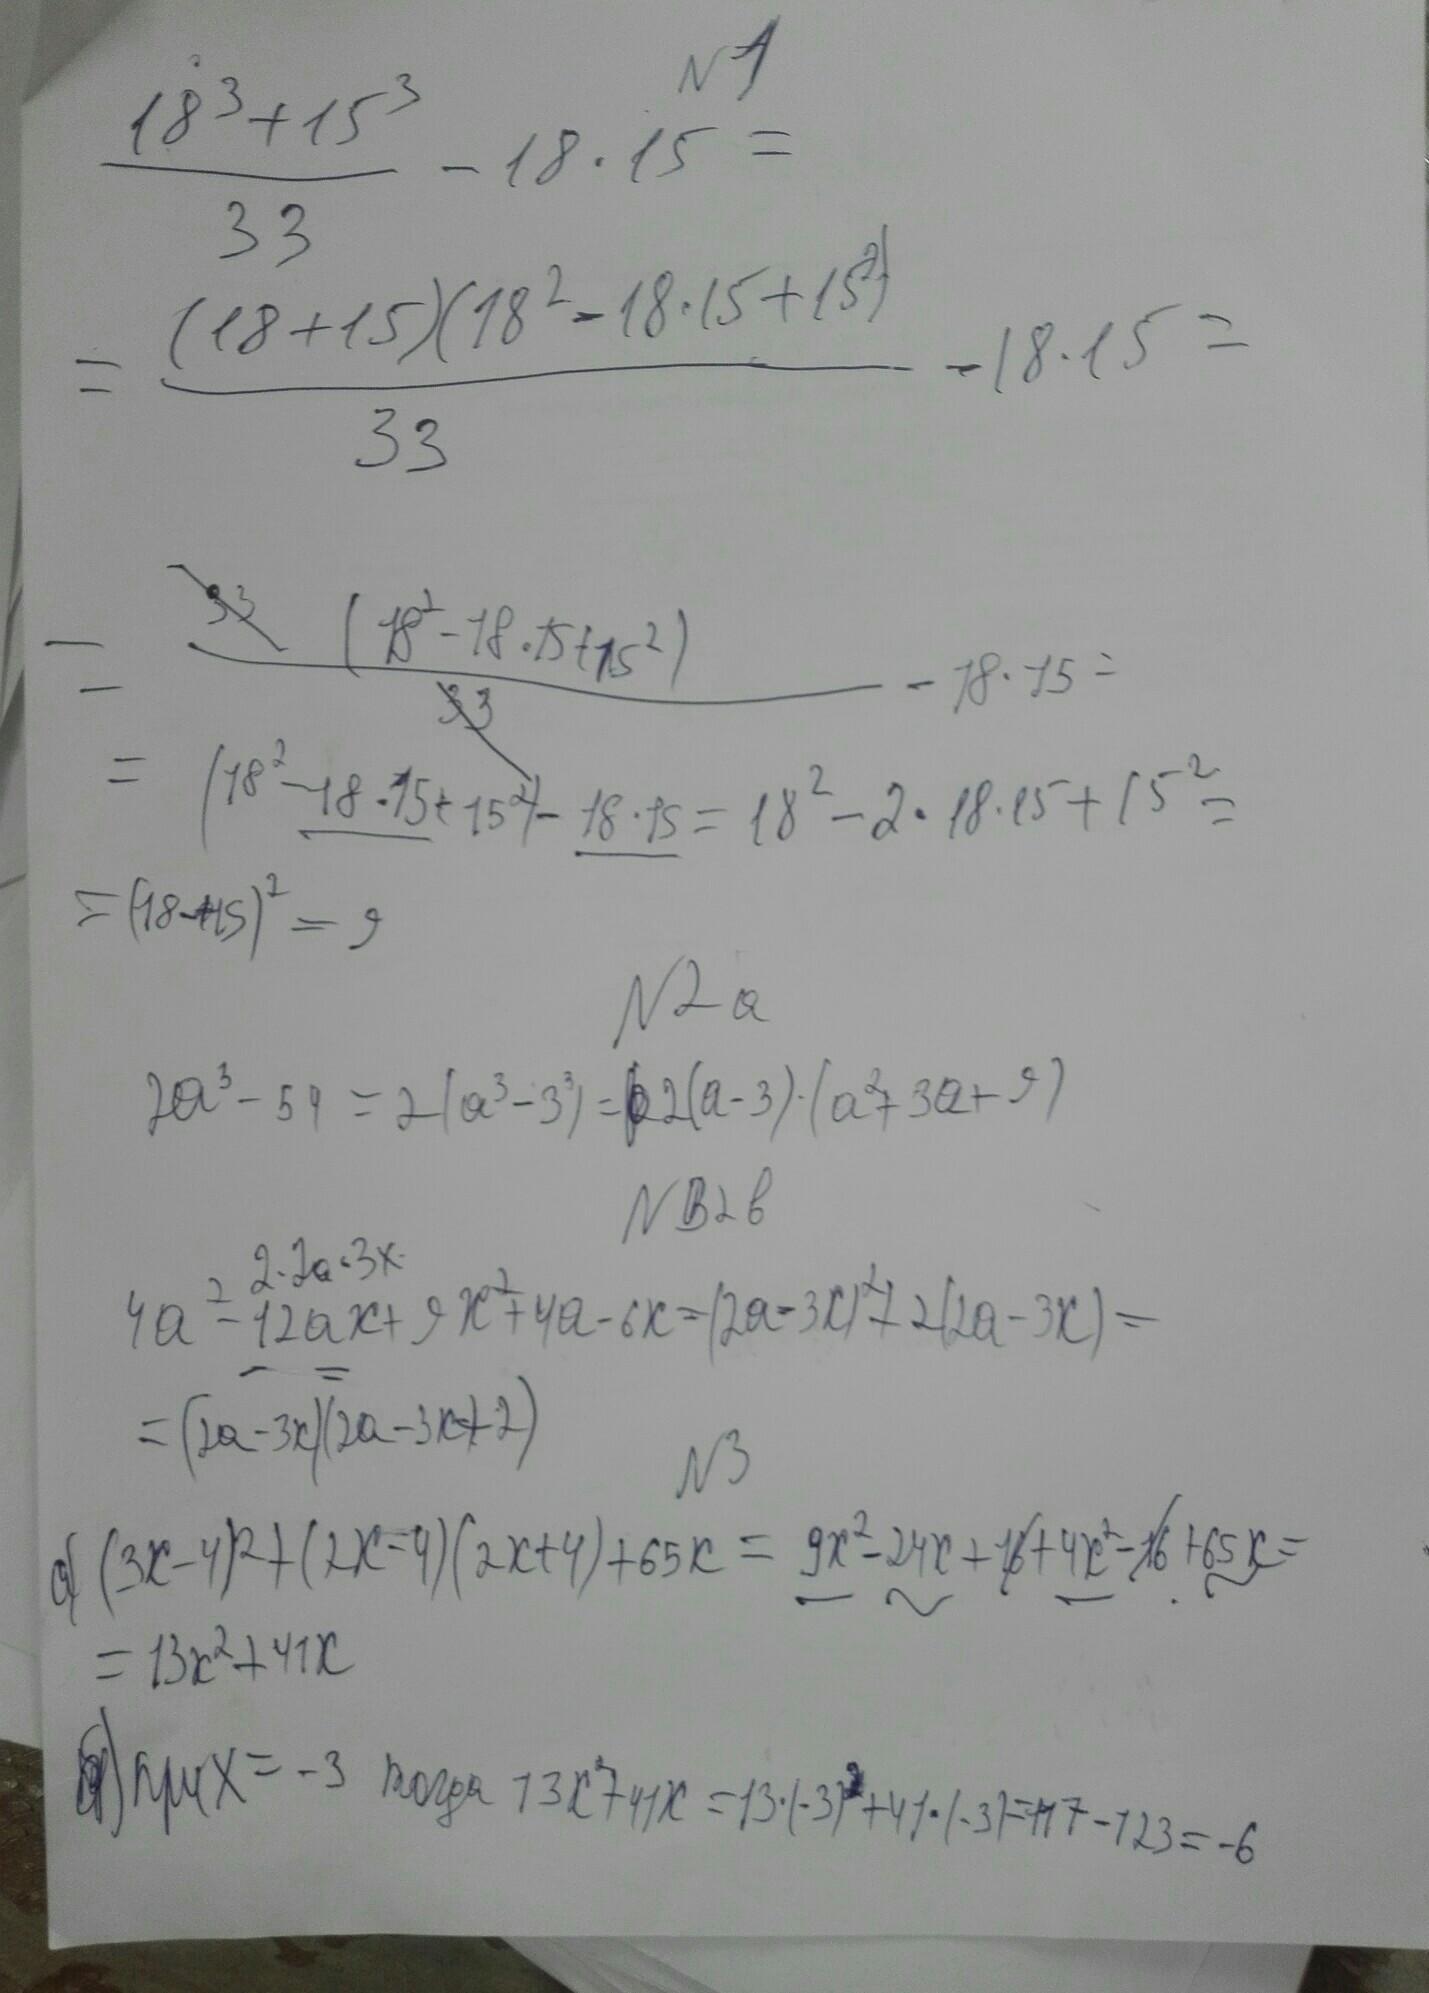 N1
18³+15³/33 - 18·15 =
= (18+15)(18²-18·15+15²)/33 - 18·15 =
= 33 (18²-18·15+15²)/33 - 18·15 =
= (18²-18·15+15²)- 18·15 = 18²-2·18·15+15² =
= (18-15)² = 9
N2a
2a³-54 = 2(a³-3³) = 2(a-3)·(a²+3a+9)
N2в
2·2a·3x
4a²-12ax+9x²+4a-6x=(2a-3x)²+2(2a-3x)=
=(2a-3x)(2a-3x+2)
N3
а) (3x-4)²+(2x-4)(2x+4)+65x = 9x²-24x+16+4x²-16+65x=
= 13x²+41x
при x=-3 тогда 13x²+41x=13·(-3)²+41·(-3)=117-123=-6